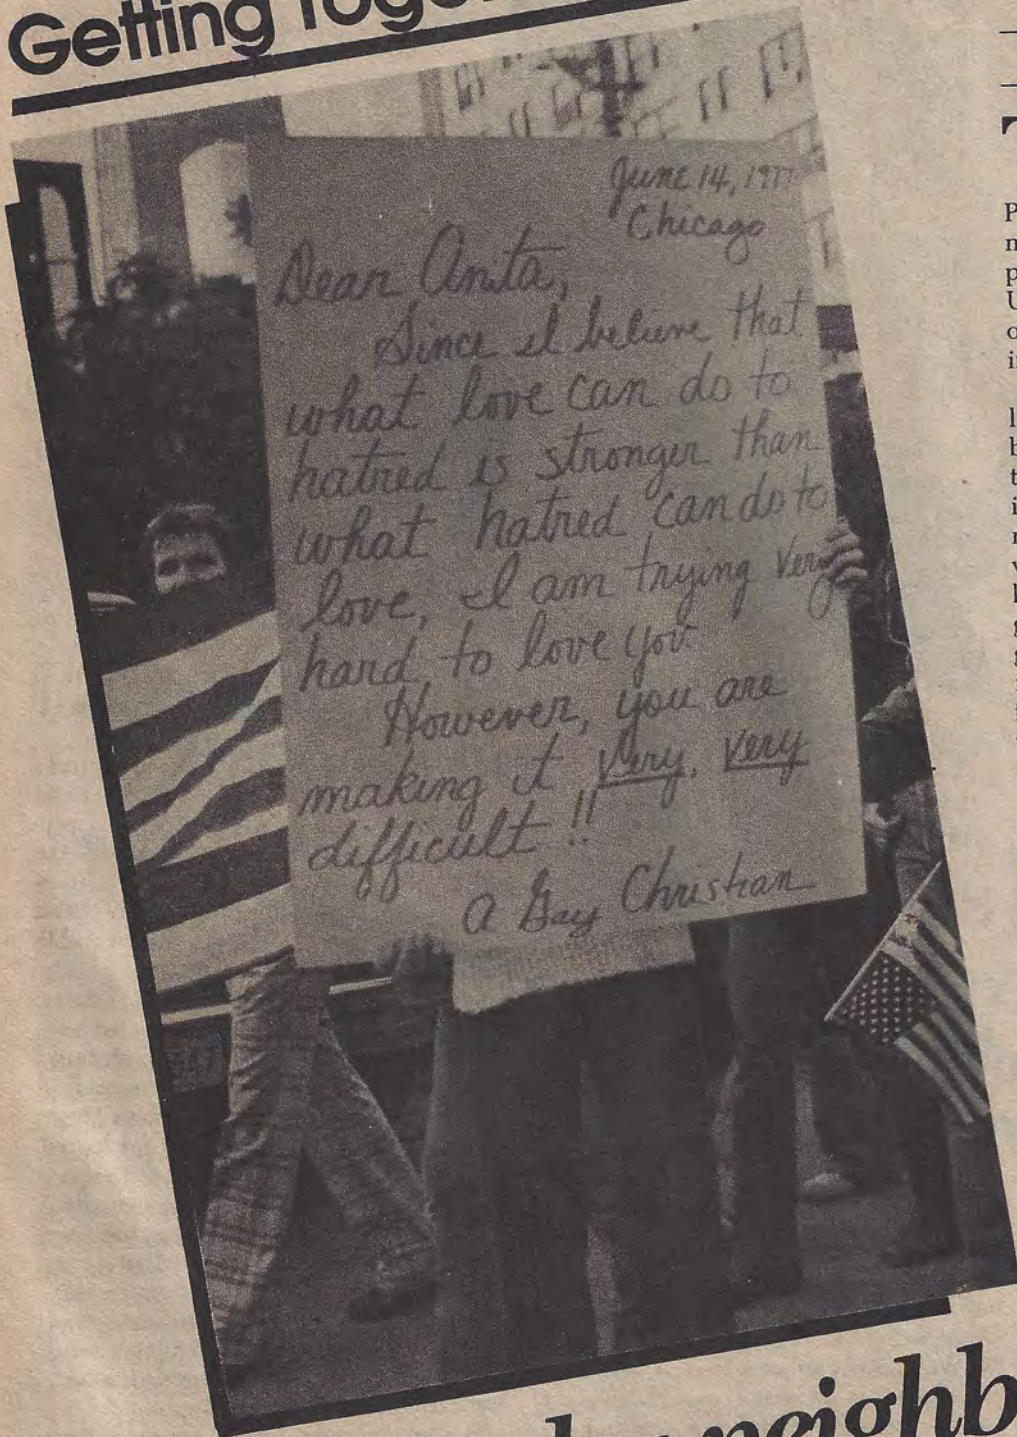 Getting
June 14, 1977
Chicago
Dear Anita,
Since I believe that
what love can do to
hatred is stronger than
what hatred can do to
love, I am trying very
hard to love you.
However, you are
making it very, very
difficult!!
A Gay Christian